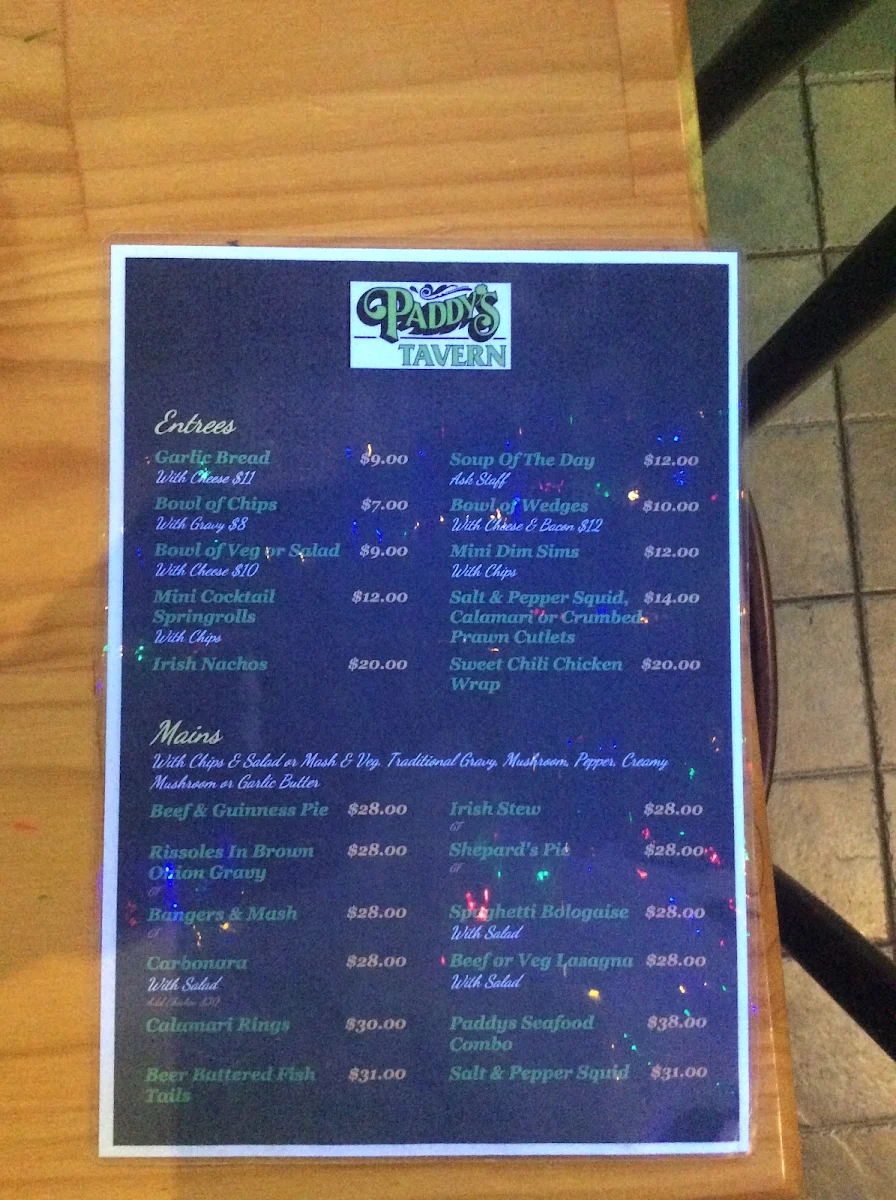 PADDY'S
TAVERN
Entrees
Garlic Bread $9.00
With Cheese $11
Bowl of Chips $7.00
With Gravy $8
Bowl of Veg or Salad $9.00
With Cheese $10
Mini Cocktail $12.00
Springrolls
With Chips
Irish Nachos $20.00
Soup Of The Day $12.00
Ask Staff
Bowl of Wedges $10.00
With Cheese & Bacon $12
Mini Dim Sims $12.00
With Chips
Salt & Pepper Squid, $14.00
Calamari or Crumbed
Prawn Cutlets
Sweet Chili Chicken $20.00
Wrap
Mains
With Chips & Salad or Mash & Veg. Traditional Gravy, Mushroom, Pepper, Creamy
Mushroom or Garlic Butter
Beef & Guinness Pie $28.00
Rissoles In Brown $28.00
Onion Gravy
GF
Bangers & Mash $28.00
GF
Carbonara $28.00
With Salad
Calamari Rings $30.00
Beer Buttered Fish $31.00
Tails
Irish Stew $28.00
GF
Shepard's Pie $28.00
GF
Spaghetti Bologaise $28.00
With Salad
Beef or Veg Lasagna $28.00
With Salad
Paddys Seafood $38.00
Combo
Salt & Pepper Squid $31.00